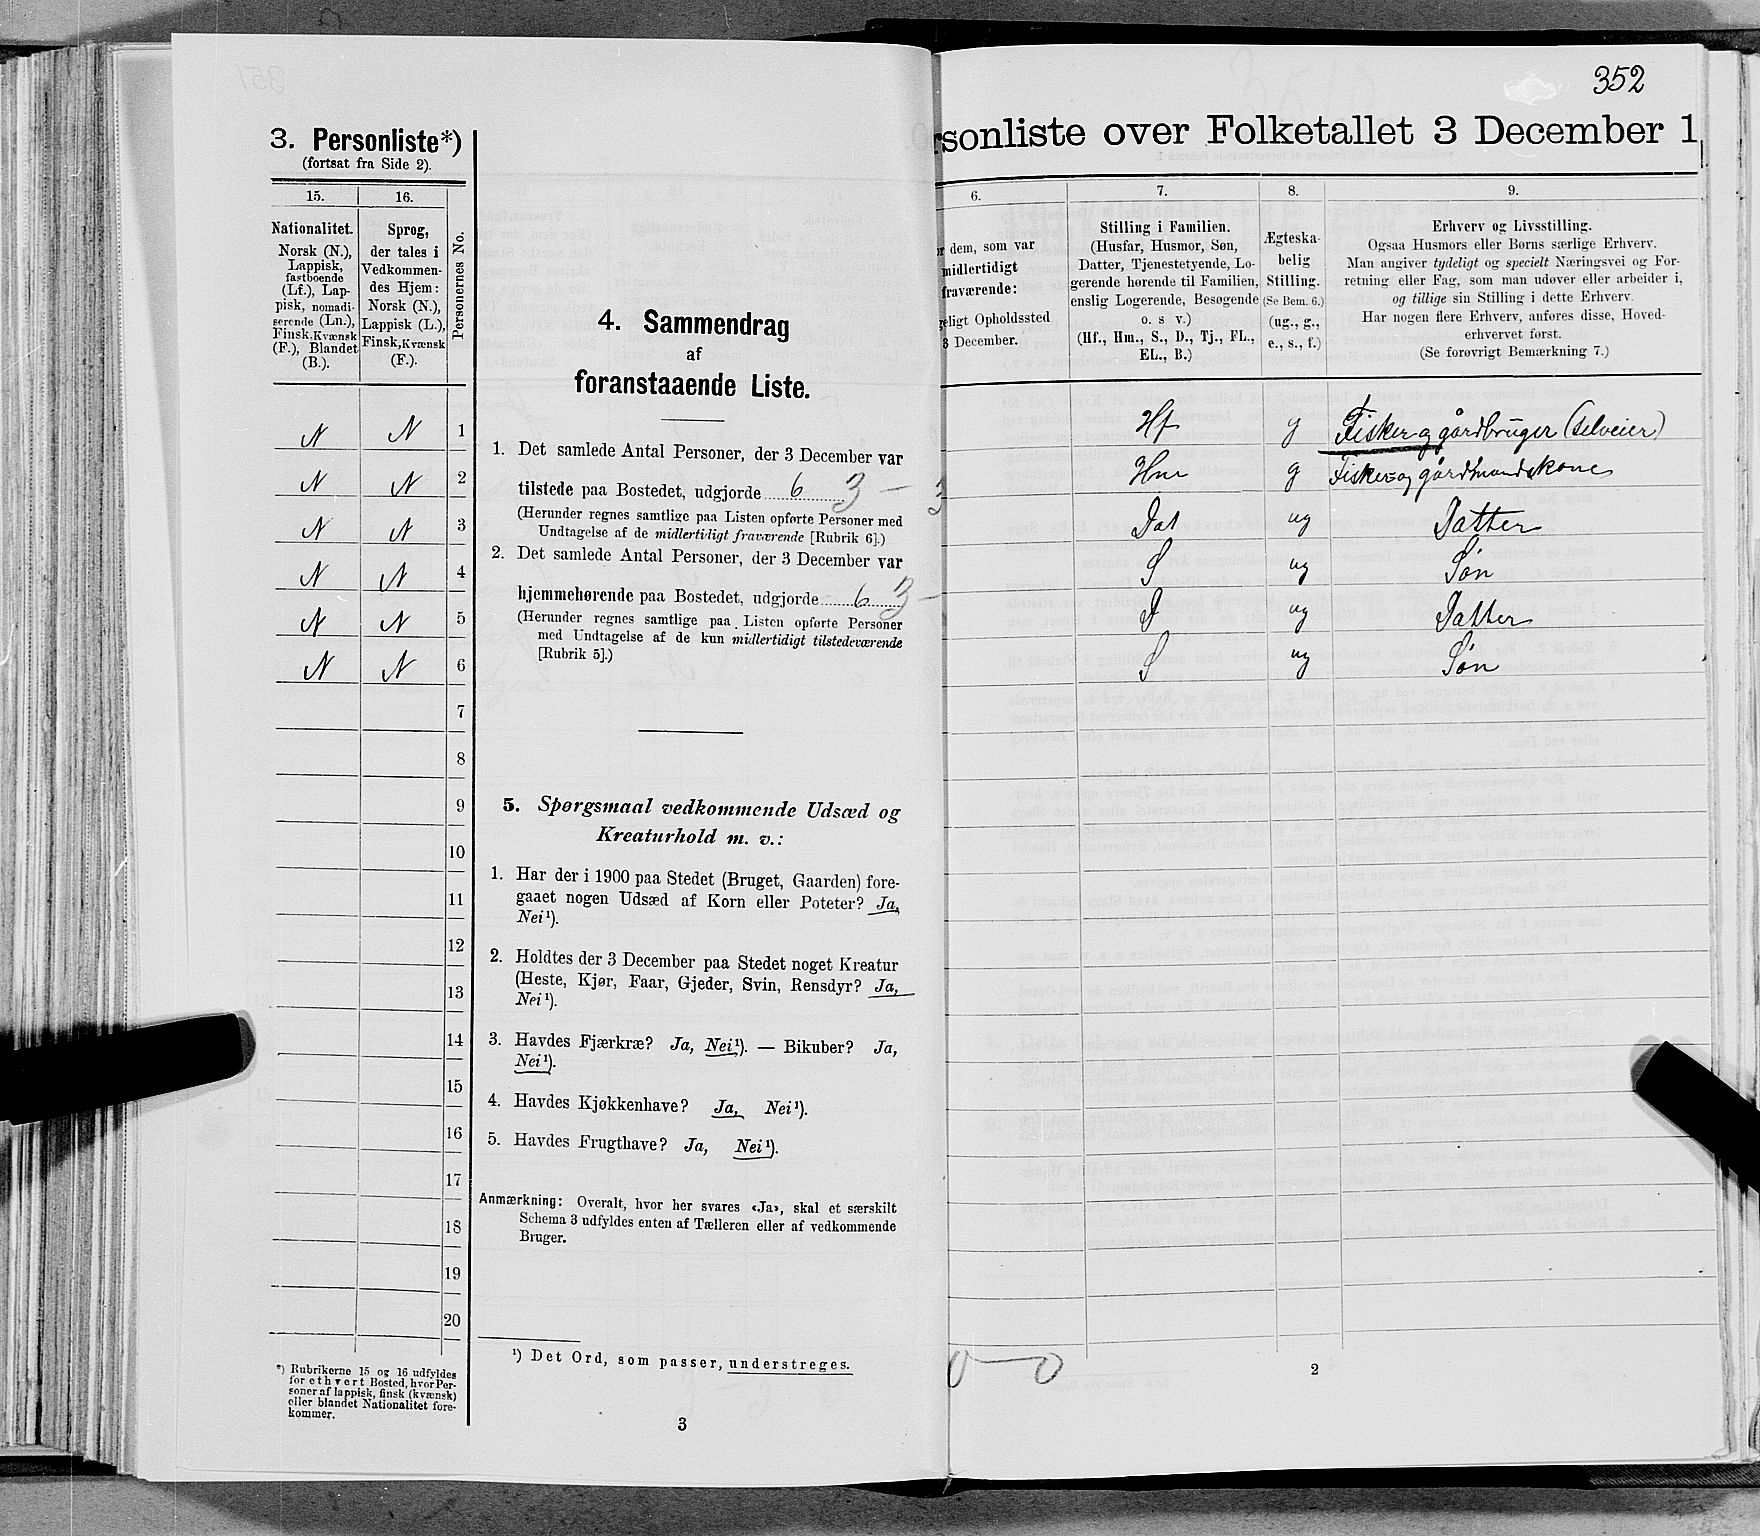 3. Personliste*)
(fortsat fra Side 2).
15.
16.
Nationalitet.
Norsk (N.),
Lappisk,
fastboende
(Lf.), Lap-
pisk, nomadi-
serende (Ln.),
Finsk, Kvænsk
(F.), Blandet
(B.).
Sprog,
der tales i
Vedkommen-
des Hjem:
Norsk (N.),
Lappisk (L.),
Finsk, Kvænsk
(F.).
Personernes No.
N N 1
N N 2
N N 3
N N 4
N N 5
N N 6
7
8
9
10
11
12
13
14
15
16
17
18
19
20
*) Rubrikerne 15 og 16 udfyldes
for ethvert Bosted, hvor Per-
soner af lappisk, finsk (kvænsk)
eller blandet Nationalitet fore-
kommer.
4. Sammendrag
af
foranstaaende Liste.
1. Det samlede Antal Personer, der 3 December var
tilstede paa Bostedet, udgjorde 6 3 – 3
(Herunder regnes samtlige paa Listen opførte Personer med
Undtagelse af de midlertidigt fraværende [Rubrik 6].)
2. Det samlede Antal Personer, der 3 December var
hjemmehørende paa Bostedet, udgjorde 6 3 –
(Herunder regnes samtlige paa Listen opførte Personer
med Undtagelse af de kun midlertidigt tilstedeværende
[Rubrik 5].)
5. Spørgsmaal vedkommende Udsæd og
Kreaturhold m. v.:
1. Har der i 1900 paa Stedet (Bruget, Gaarden) fore-
gaaet nogen Udsæd af Korn eller Poteter? Ja,
Nei¹).
2. Holdtes der 3 December paa Stedet noget Kreatur
(Heste, Kjør, Faar, Gjeder, Svin, Rensdyr? Ja,
Nei¹).
3. Havdes Fjærkræ? Ja, Nei¹). — Bikuber? Ja,
Nei¹).
4. Havdes Kjøkkenhave? Ja, Nei¹).
5. Havdes Frugthave? Ja, Nei¹).
Anmærkning: Overalt, hvor her svares «Ja», skal et særskilt
Schema 3 udfyldes enten af Tælleren eller af vedkommende
Bruger.
¹) Det Ord, som passer, understreges.
3
352
rsonliste over Folketallet 3 December 1
6.
7.
8.
9.
or dem, som var
midlertidigt
fraværende:
geligt Opholdssted
3 December.
Stilling i Familien.
(Husfar, Husmor, Søn,
Datter, Tjenestetyende, Lo-
gerende hørende til Familien,
enslig Logerende, Besøgende
o. s v.)
(Hf., Hm., S., D., Tj., FL.,
EL., B.)
Ægteska-
belig
Stilling.
(Se Bem. 6.)
(ug., g.,
e., s., f.)
Erhverv og Livsstilling.
Ogsaa Husmors eller Børns særlige Erhverv.
Man angiver tydeligt og specielt Næringsvei og For-
retning eller Fag, som man udøver eller arbeider i,
og tillige sin Stilling i dette Erhverv.
Har nogen flere Erhverv, anføres disse, Hoved-
erhvervet først.
(Se forøvrigt Bemærkning 7.)
Hf g Fisker og gårdbruger (selveier)
Hm g Fisker og gårdmandskone
Dat ug Datter
S ug Søn
D ug Datter
S ug Søn
0 – 0
2